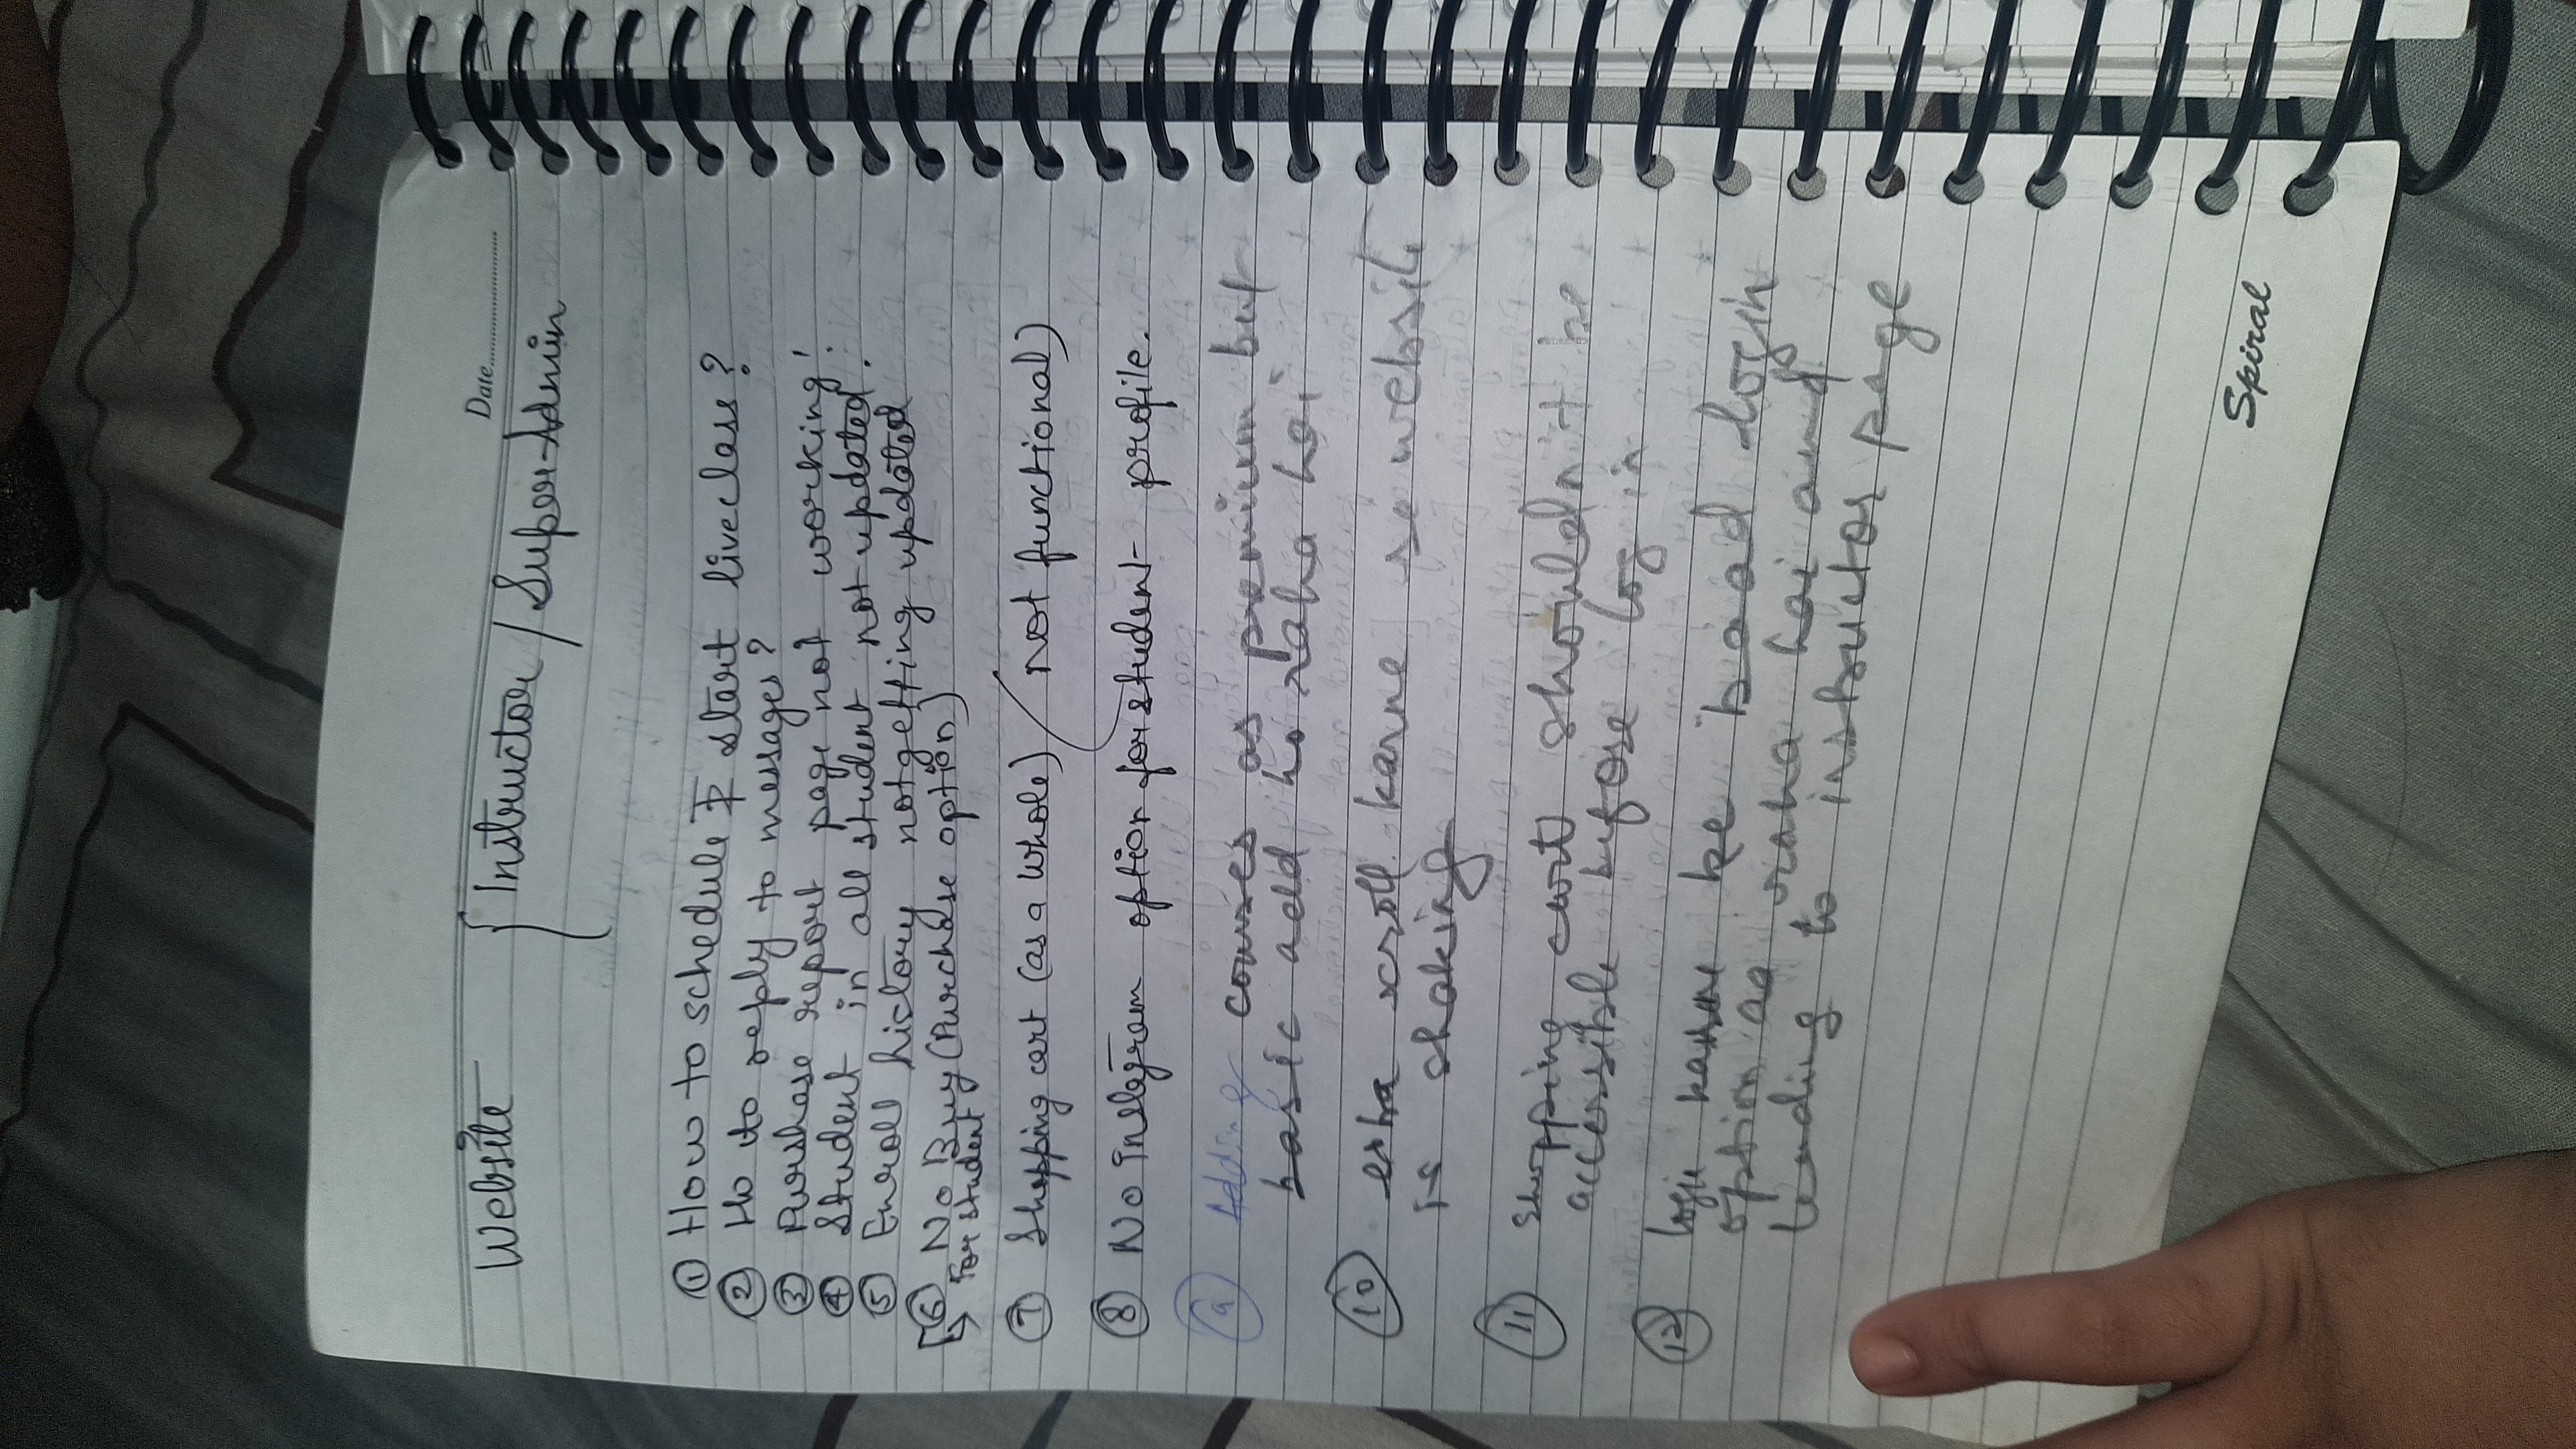 Date
Website { Instructor / Super-Admin
① How to schedule & start liveclass?
② Ho to reply to messages?
③ Purshase report page not working!
④ Student in all student not updated.
⑤ Enroll history not getting updated
⑥ No Buy (Purchase option)
→ For student
⑦ Shopping cart (as a whole) (Not functional)
⑧ No instagram option for student profile.
⑨ Adding courses as premium but
basic add ho raha hai
⑩ extra scroll karne se website
is shaking
⑪ shopping cart shouldn't be
accessible before log in
⑫ login karne ke baad login
option aa raha hai and
leading to instructor page
Spiral